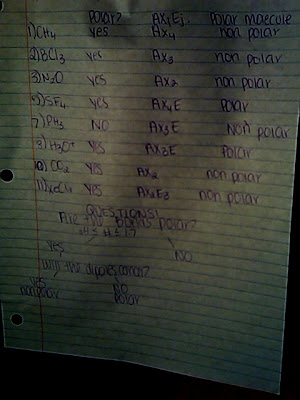 Polar? AxyEj Polar molecule
1) CH4 yes Ax4 non polar
2) BCl3 yes Ax3 non polar
3) N2O yes Ax2 non polar
SF4 yes Ax4E Polar
7) PH3 NO Ax3E Non polar
H3O+ yes Ax3E Polar
10) CO2 yes Ax2 non polar
11) XeCl2 yes Ax2E3 non polar
QUESTIONS!
Are the bonds polar?
yes NO
Will the dipoles cancel?
yes NO
non polar Polar